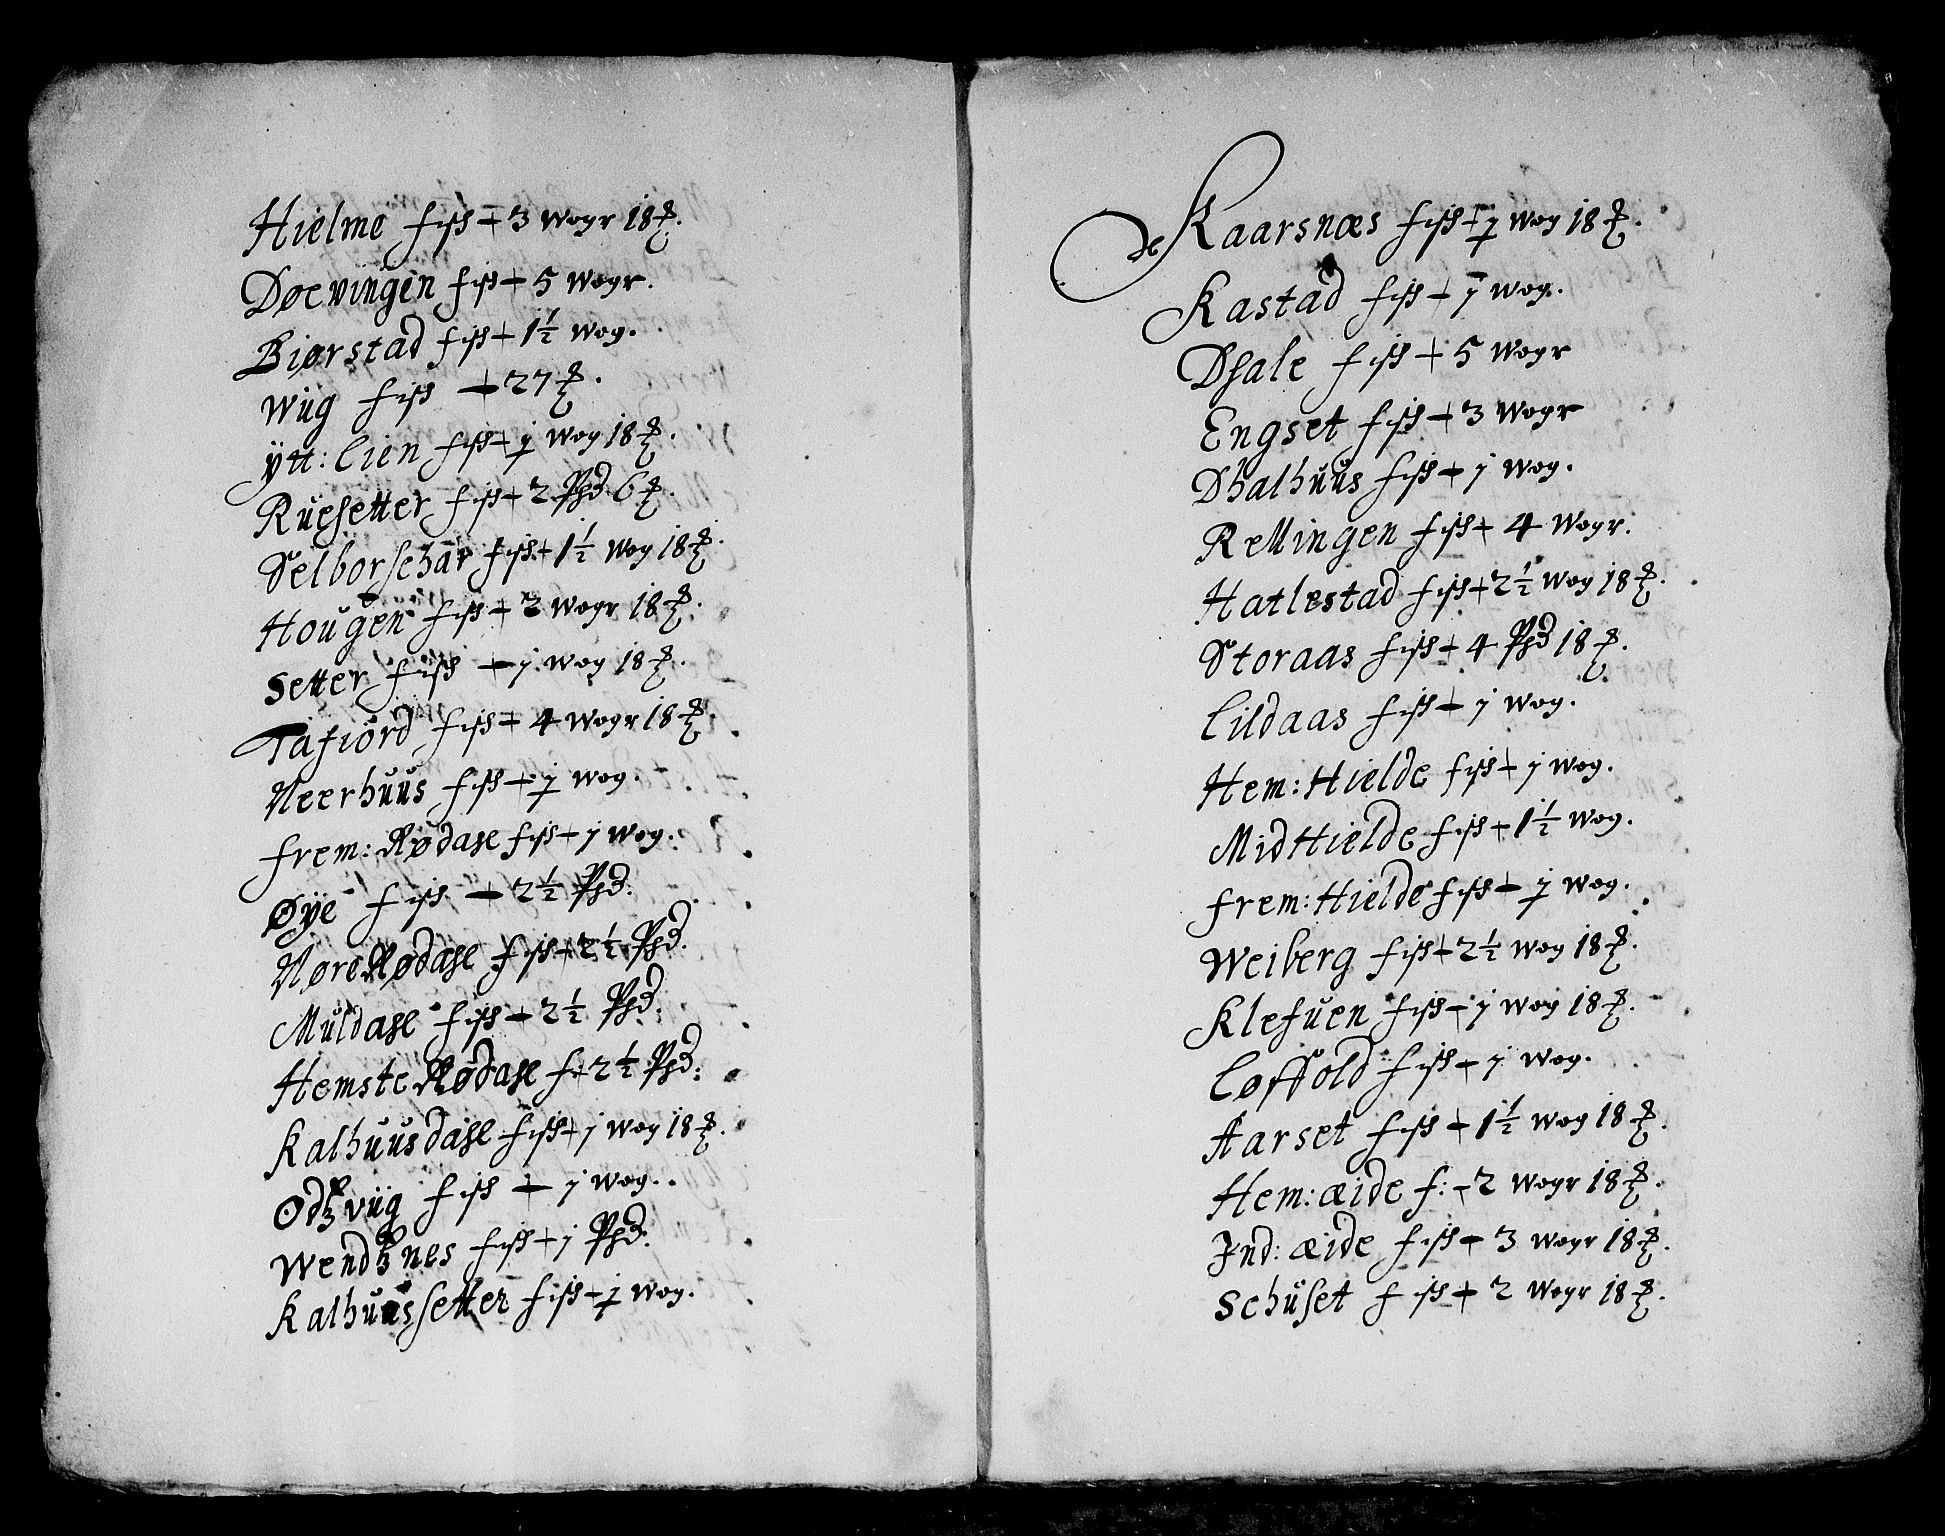 Hielme fisk – 3 Wogr 18 ℔.
Døevingen fisk – 5 Wogr.
Biørstad fisk – 1½ Wog.
Wiig fisk – 27 ℔.
ÿtt: Lien fisk – j Wog 18 ℔.
Ruesetter fisk – 2 Phd 6 ℔.
Selborschar fisk – 1½ Wog 18 ℔.
Hougen fisk – 2 Wogr 18 ℔.
Setter fisk – j Wog 18 ℔.
Tafiord fisk – 4 Wogr 18 ℔.
Neerhuus fisk – j Wog.
frem: Rødahl fisk – j Wog.
Øÿe fisk – 2½ Phd.
Nøre Rødahl fisk – 2½ Phd.
Muldahl fisk – 2½ Phd.
Hemste Rødahl f: 2½ Phd:
Kalhuusdahl fisk – j Wog 18 ℔.
Odtzviig fisk – j Wog.
Wendtznes fisk – j Phd.
Kalhuussetter fisk – j Wog.
Kaarsnæs fisk – j Wog 18 ℔.
Kastad fisk – j Wog.
Dhale fisk – 5 Wogr
Engset fisk – 3 Wogr
Dhalhuus fisk – j Wog.
Rellingen fisk – 4 Wogr.
Hatlestad fisk – 2½ Wog 18 ℔.
Storaas fisk – 4 Phd 18 ℔.
Lildaas fisk – j Wog.
Hem: Hielde fisk – j Wog.
Mid Hielde fisk – 1½ Wog.
frem: Hielde fisk – j Wog.
Weiberg fisk – 2½ Wog 18 ℔.
Klefuen fisk – j Wog 18 ℔.
Løffold fisk – j Wog.
Aarset fisk – 1½ Wog 18 ℔.
Hem: æide f: – 2 Wogr 18 ℔.
Ind: æide fisk – 3 Wogr 18 ℔.
Schuset fisk – 2 Wogr 18 ℔.